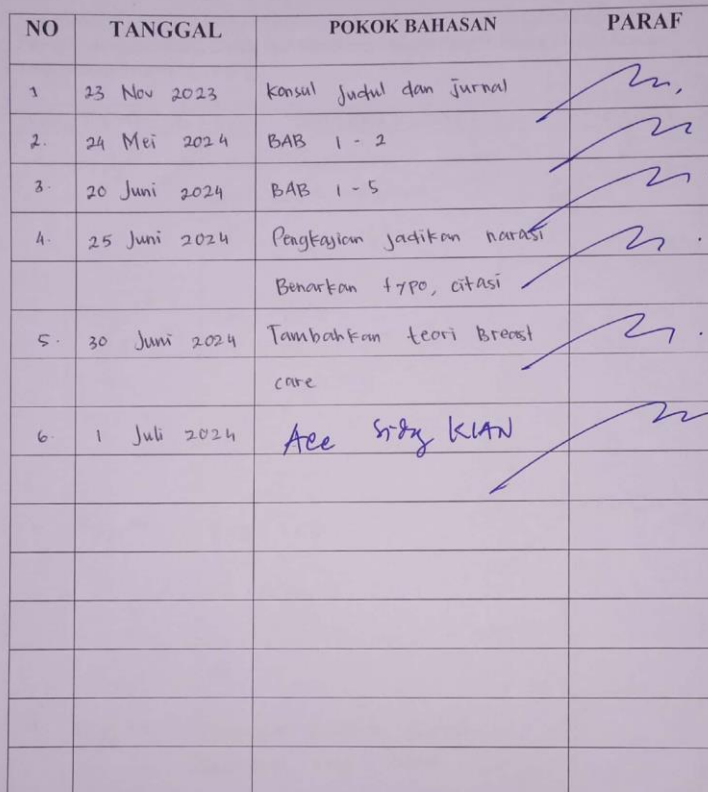 NO TANGGAL POKOK BAHASAN PARAF
1 23 Nov 2023 Konsul Judul dan Jurnal
2. 24 Mei 2024 BAB 1 - 2
3. 20 Juni 2024 BAB 1 - 5
4. 25 Juni 2024 Pengkajian jadikan narasi
Benarkan typo, citasi
5. 30 Juni 2024 Tambahkan teori Breast
care
6. 1 Juli 2024 Acc Sidg KIAN